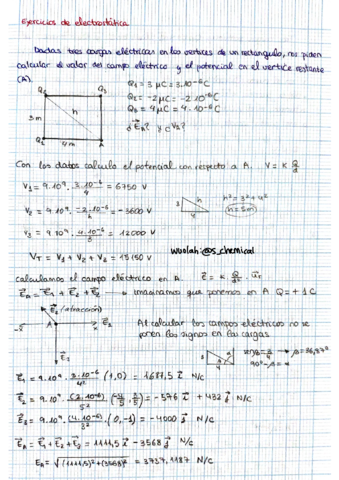 Ejercicios de electrostática
Dadas tres cargas eléctricas en los vertices de un rectangulo, nos piden
calcular el valor del campo eléctrico y el potencial en el vertice restante
(A).
Q₁ = 3 μC = 3·10⁻⁶ C
Q₂ = -2μC = -2·10⁻⁶ C
Q₃ = 4μC = 4·10⁻⁶ C
3m
h
A
4m
Con los datos calculo el potencial con respecto a A. V = K Q/d
V₁ = 9·10⁹ · 3·10⁻⁶/4 = 6750 V
V₂ = 9·10⁹ · = -3600 V
V₃ = 9·10⁹ · 4·10⁻⁶/3 = 12000 V
3 h 4
h² = 3² + 4²
h = 5m
VT = V₁ + V₂ + V₃ = 15150 V
wuolah: @s_chemical
calculamos el campo eléctrico en A.
imaginamos que ponemos en A Q = +1 C
(atracción)
Al calcular los campos eléctricos no se
ponen los signos en las cargas
E⃗₁ = 9·10⁹ · 3·10⁻⁶/4² (1,0) = 1687,5 i⃗ N/C
E⃗₂ = 9·10⁹ · (2·10⁻⁶)/5² (-4/5, 3/5) = -576 i⃗ + 432 j⃗ N/C
E⃗₃ = 9·10⁹ · (4·10⁻⁶)/3² (0,-1) = -4000 j⃗ N/C
E⃗A = E⃗₁ + E⃗₂ + E⃗₃ = 1111,5 i⃗ - 3568 j⃗ N/C
EA = √(1111,5)² + (3568)² = 3737,1187 N/C